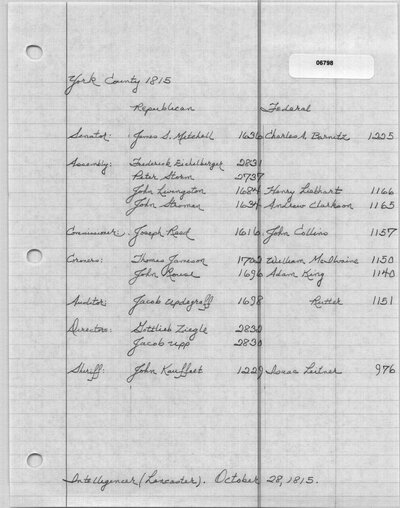 06798
York County 1815
Republican Federal
Senator: James S. Mitchell 1636 Charles A. Barnitz 1225
Assembly: Frederick Eichelberger 2831
Peter Storm 2797
John Livingston 1684 Henry Liebhart 1166
John Stroman 1634 Andrew Clarkson 1165
Commissioner: Joseph Reed 1616 John Collins 1157
Coroners: Thomas Jameson 1702 William McIlvaine 1150
John Rouse 1696 Adam King 1140
Auditor: Jacob Updegraff 1698 Rutter 1151
Directors: Gottlieb Ziegle 2832
Jacob Upp 2830
Sheriff: John Kauffelt 1229 Isaac Leitner 976
Intelligencer (Lancaster). October 28, 1815.